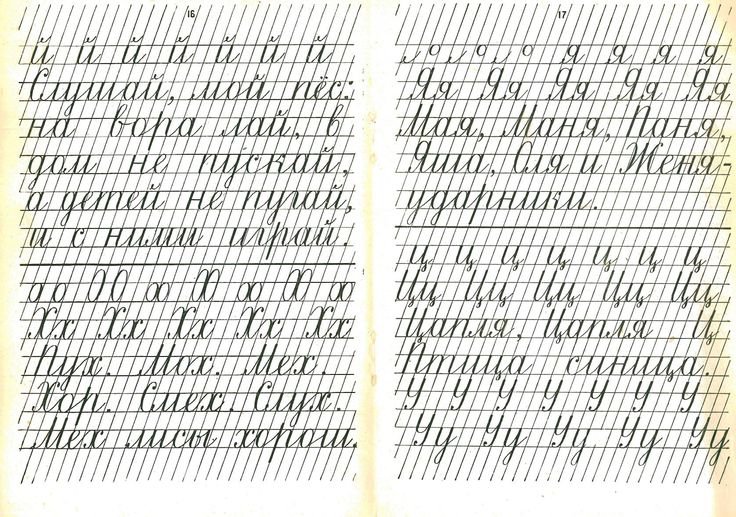 16
й й й й й й й
Слушай, мой пёс:
на вора лай, в
дом не пускай,
а детей не пугай,
и с ними играй.
Хх Хх Хх Хх Хх
Пух. Мох. Мех.
Хор. Смех. Слух.
Мех лисы хорош.
17
я я я я
Яя Яя Яя Яя Яя
Мая, Маня, Паня,
Яша, Оля и Женя-
ударники.
ц ц ц ц ц ц ц
Цц Цц Цц Цц Цц
Цапля, Цапля Ц
Птица синица.
У У У У У У У
Уу Уу Уу Уу Уу